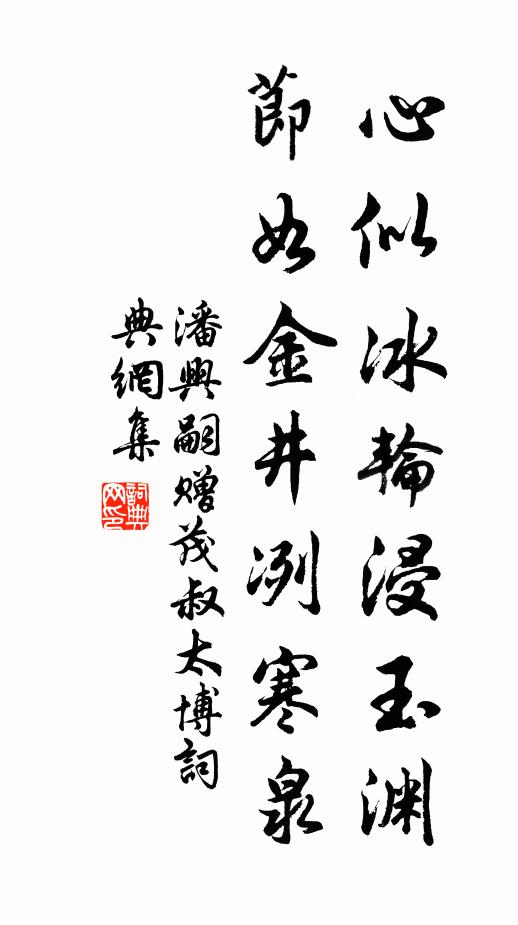 心似冰輪浸玉渊
節如金井冽寒泉
潘興嗣赠茂叔太博詞
典網集
詞典
网印